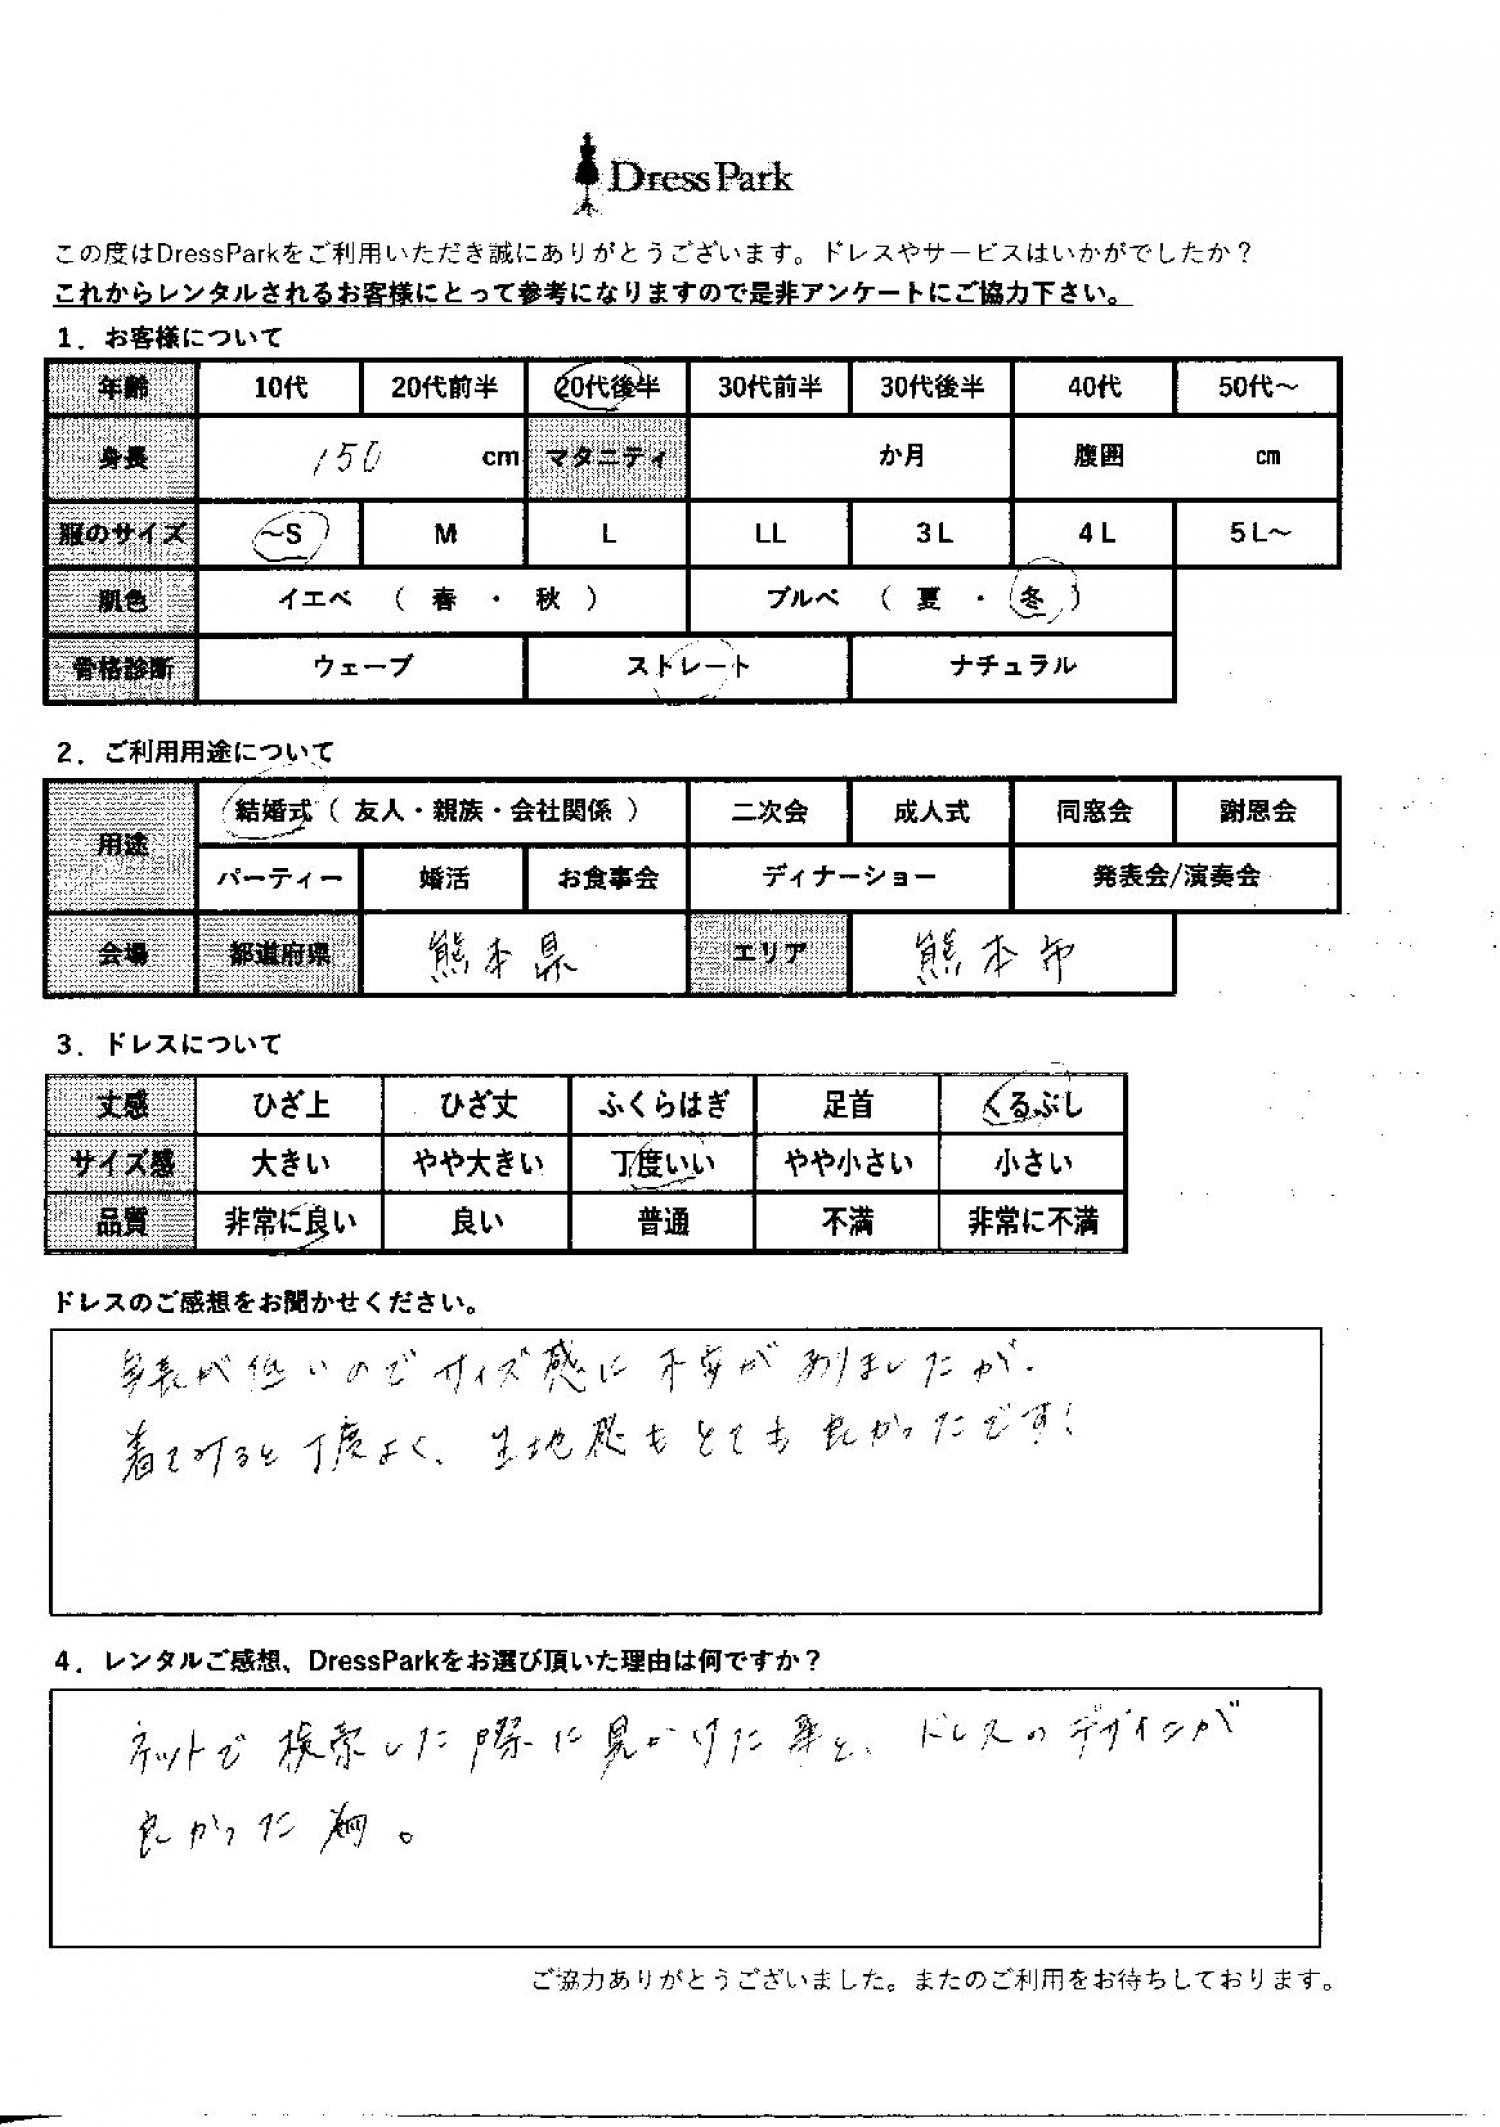 DressPark
この度はDressParkをご利用いただき誠にありがとうございます。ドレスやサービスはいかがでしたか？
これからレンタルされるお客様にとって参考になりますので是非アンケートにご協力下さい。
1．お客様について
年齢 10代 20代前半 20代後半 30代前半 30代後半 40代 50代～
身長 150 cm マタニティ か月 腹囲 cm
服のサイズ ～S M L LL 3L 4L 5L～
肌色 イエベ （ 春 ・ 秋 ） ブルベ （ 夏 ・ 冬 ）
骨格診断 ウェーブ ストレート ナチュラル
2．ご利用用途について
用途 結婚式（ 友人・親族・会社関係 ） 二次会 成人式 同窓会 謝恩会
パーティー 婚活 お食事会 ディナーショー 発表会/演奏会
会場 都道府県 熊本県 エリア 熊本市
3．ドレスについて
丈感 ひざ上 ひざ丈 ふくらはぎ 足首 くるぶし
サイズ感 大きい やや大きい 丁度いい やや小さい 小さい
品質 非常に良い 良い 普通 不満 非常に不満
ドレスのご感想をお聞かせください。
身長が低いのでサイズ感に不安がありましたが、
着てみると丁度よく、生地感もとても良かったです!
4．レンタルご感想、DressParkをお選び頂いた理由は何ですか？
ネットで検索した際に見かけた事と、ドレスのデザインが
良かった為。
ご協力ありがとうございました。またのご利用をお待ちしております。